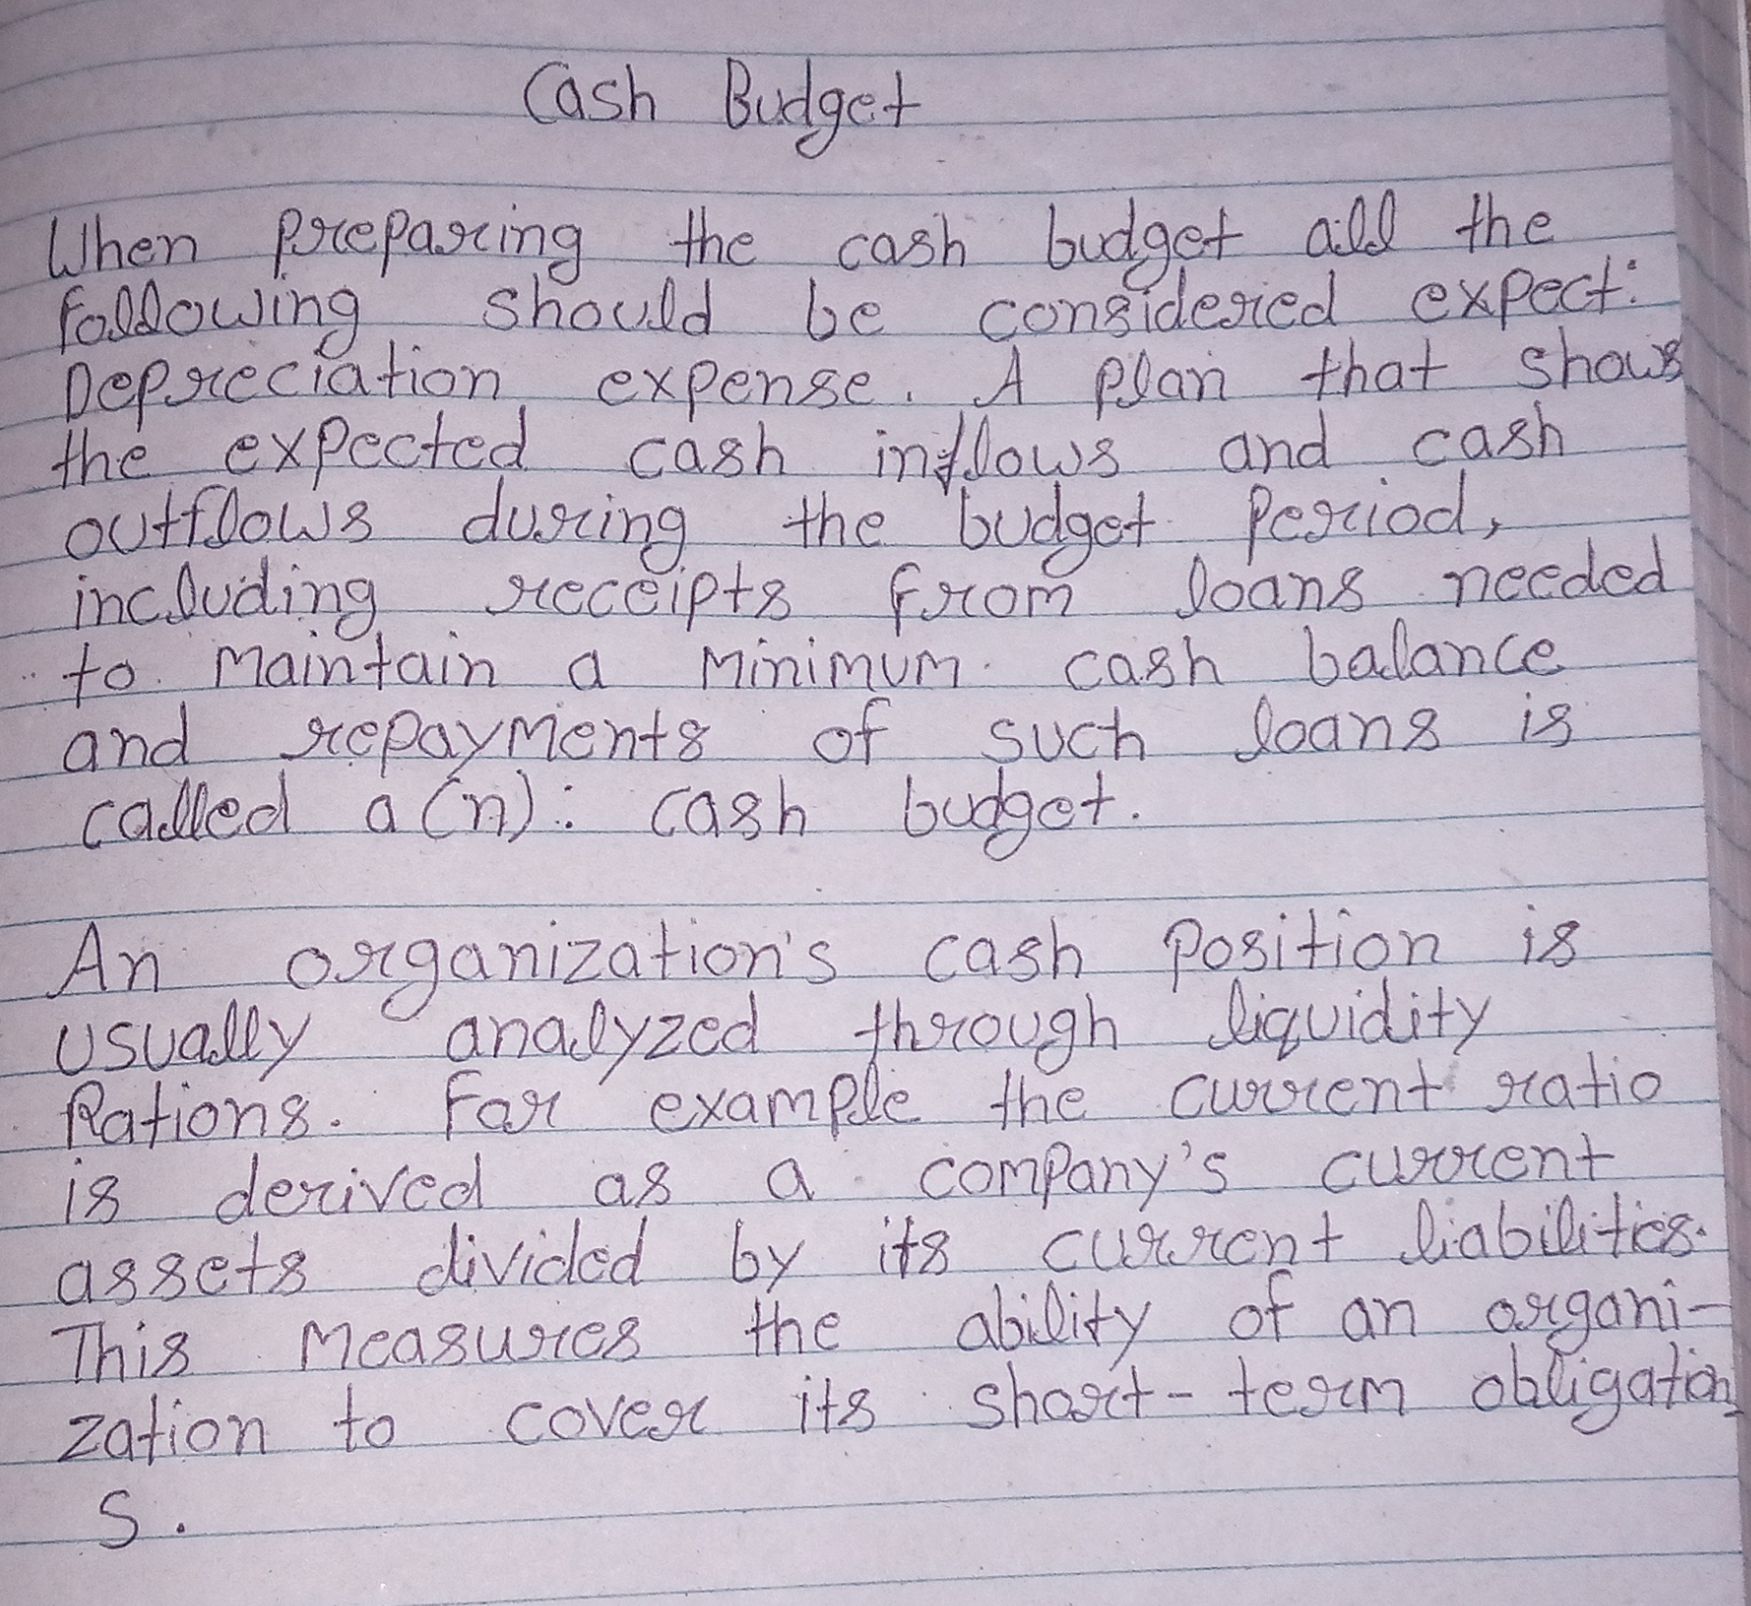 Cash Budget
When preparing the cash budget all the
following should be considered expect:
Depreciation expense. A plan that shows
the expected cash inflows and cash
outflows during the budget period,
including receipts from loans needed
to maintain a minimum cash balance
and repayments of such loans is
called a(n): cash budget.
An organization's cash position is
usually analyzed through liquidity
Rations. For example the current ratio
is derived as a company's current
assets divided by its current liabilities.
This measures the ability of an organi-
zation to cover its short-term obligation
s.